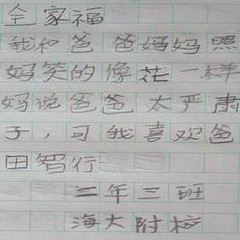 全家福
我和爸爸妈妈照
妈笑的像花一样
妈说爸爸太严肃
子，可我喜欢爸
田智行
二年三班
海大附校